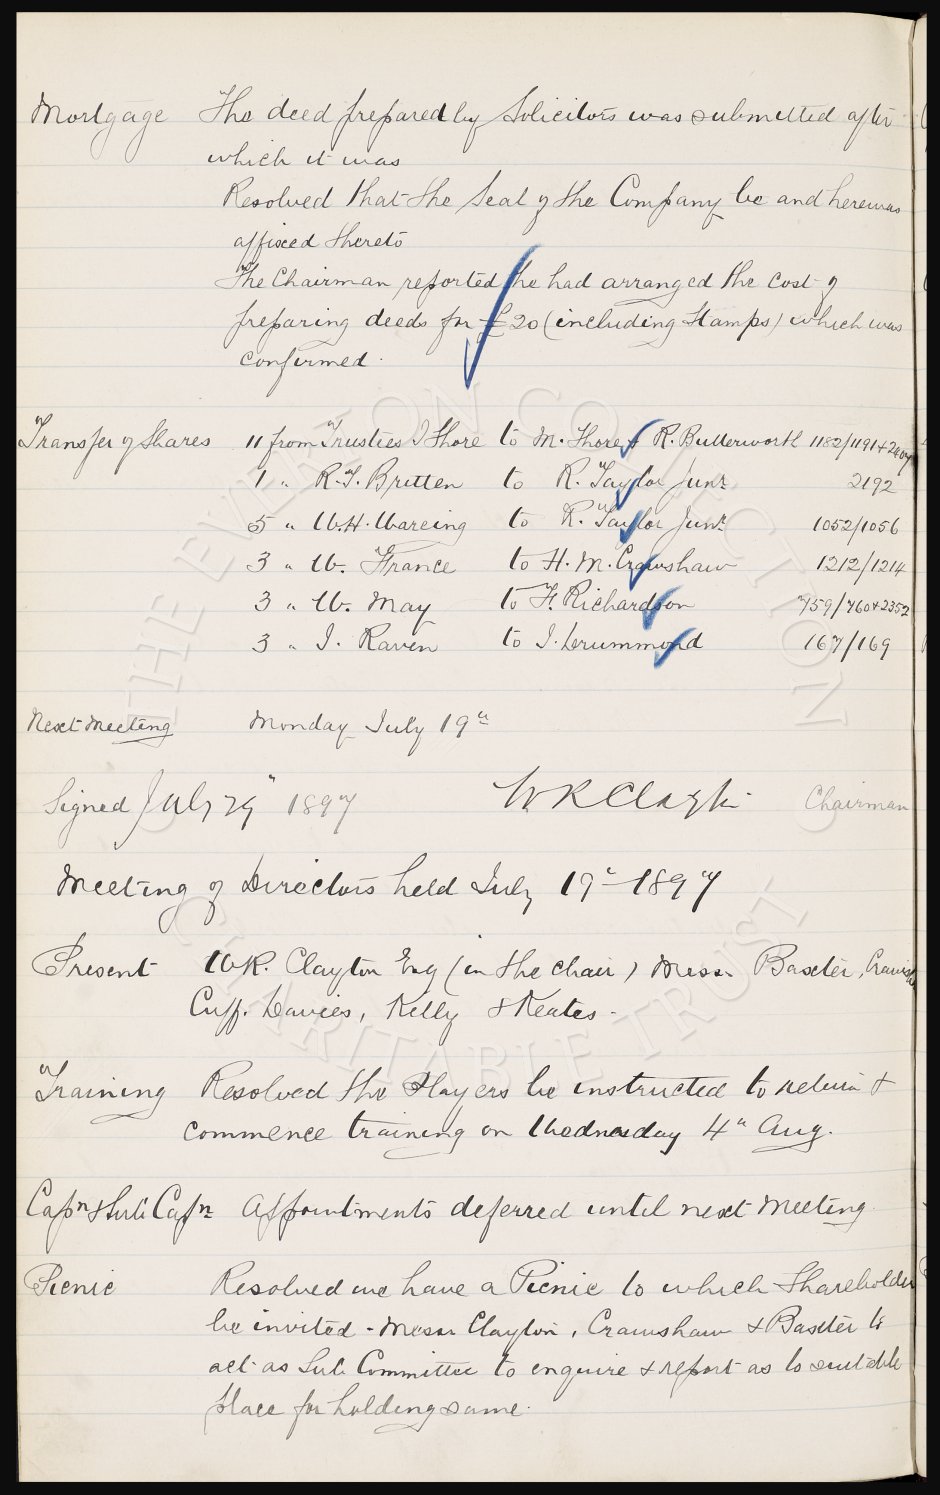 Mortgage The deed prepared by Solicitors was submitted after
which it was
Resolved that the Seal of the Company be and herewas
affixed thereto
The Chairman reported he had arranged the cost of
preparing deeds for £20 (including Stamps) which was
confirmed.
Transfer of Shares 11 from Trustees I Shore to M. Shore & R. Butterworth 1182/1191 + 2407
1 " R. T. Britten to R. Taylor Junr 2192
5 " W. H. Wareing to R. Taylor Junr 1052/1056
3 " W. France to H. M. Crawshaw 1212/1214
3 " W. May to F. Richardson 759/760 + 2352
3 " J. Raven to J. Drummond 167/169
Next Meeting Monday July 19th
Signed July 29" 1897 W R Clayton Chairman
Meeting of Directors held July 19th 1897
Present W R. Clayton Esq (in the chair) Messrs Baxter,
Cuff, Davies, Kelly & Keates -
Training Resolved the Players be instructed to return &
commence training on Wednesday 4th Aug.
Capn & Sub Capn Appointments deferred until next Meeting
Picnic Resolved we have a Picnic to which Shareholders
be invited - Messrs Clayton, Crawshaw & Baxter to
act as Sub Committee to enquire & report as to suitable
place for holding same.
THE EVERTON COLLECTION
CHARITABLE TRUST